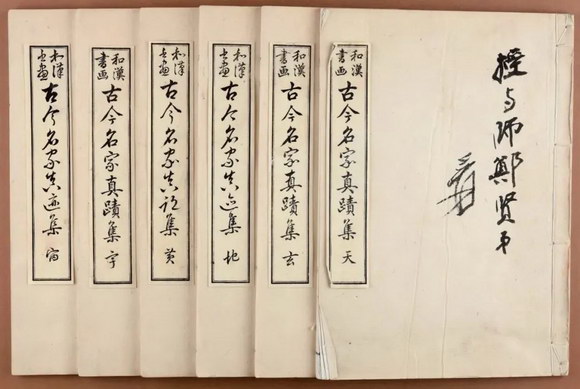 授与师鄭贤弟
爰
和漢
書画
古今名家真蹟集 天
和漢
書画
古今名家真蹟集 玄
和漢
書画
古今名家真迹集 地
和漢
書画
古今名家真跡集 黄
和漢
書画
古今名家真蹟集 宇
和漢
書画
古今名家真迹集 宙